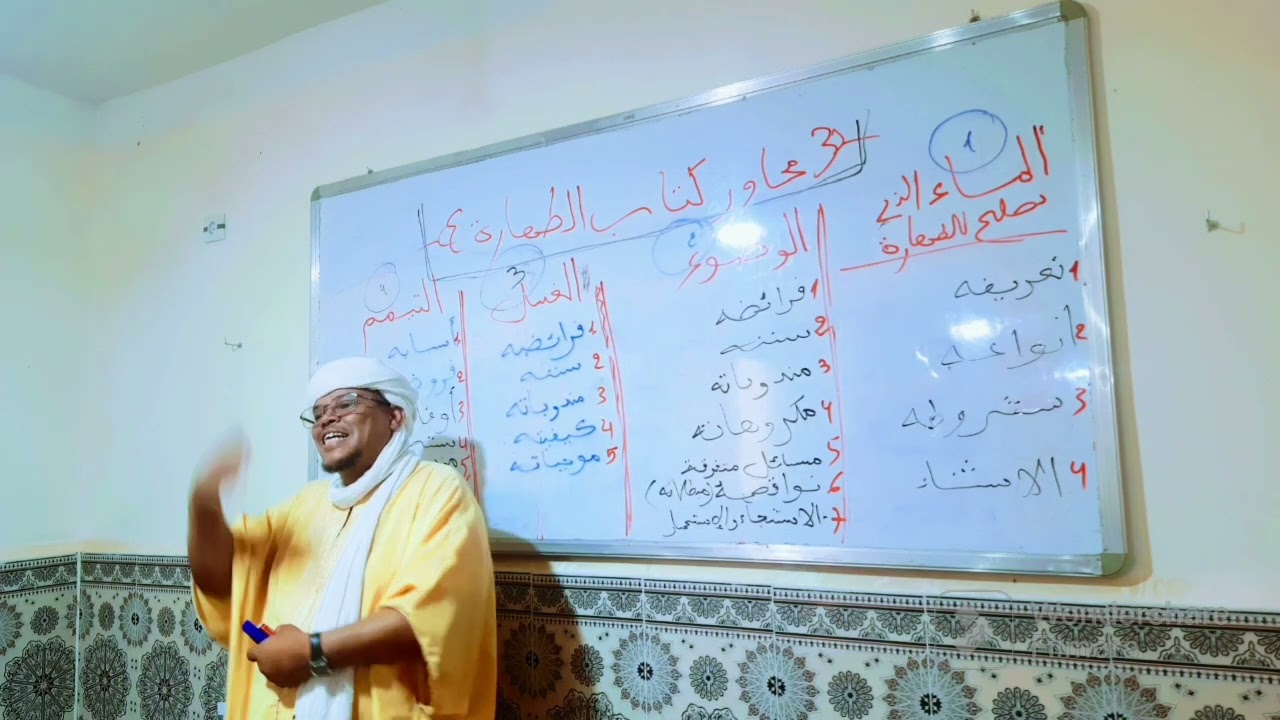 محاور كتاب الطهارة
1
الماء الذي
تصلح للطهارة
1 تعريفه
2 أنواعه
3 شروطه
4 الاستثناء
2
الوضوء
1 فرائضه
2 سننه
3 مندوباته
4 مكروهاته
5 مسائل متفرقة
6 نواقضه (مبطلاته)
7 الاستنجاء والإستجمار
3
الغسل
1 فرائضه
2 سننه
3 مندوباته
4 كيفيته
5 موجباته
4
التيمم
1 أسبابه
2
3
4 سننه
5
Wondershare
Filmora